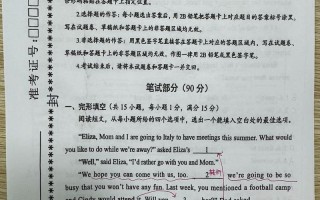 准考证号：□□□□
封
2.选择题的作答：每小题选出答案后，用 2B 铅笔把答题卡上对应题目的答案标号涂黑，
写在试题卷、草稿纸和答题卡上的非答题区域均无效。
3.非选择题的作答：用黑色签字笔直接答在答题卡上对应的答题区域内。写在试题卷、
草稿纸和答题卡上的非答题区域均无效。作图一律用 2B 铅笔或黑色签字笔。
4.考试结束后，请将本试题卷和答题卡一并交回。
笔试部分（90 分）
一、完形填空（共 15 小题，每小题 1 分，满分 15 分）
阅读短文，从每小题所给的四个选项中，选出一个能填入空白处的最佳选项。
"Eliza, Mom and I are going to Italy to have meetings this summer. What would
you like to do while we're away?" asked Eliza's 1
"Well," said Eliza, "I'd rather go with you and Mom."
"We hope you can come with us, too. 2 we're going to be so
busy that you won't have any fun. Last week, you mentioned a football camp
and Cindy would attend it. How